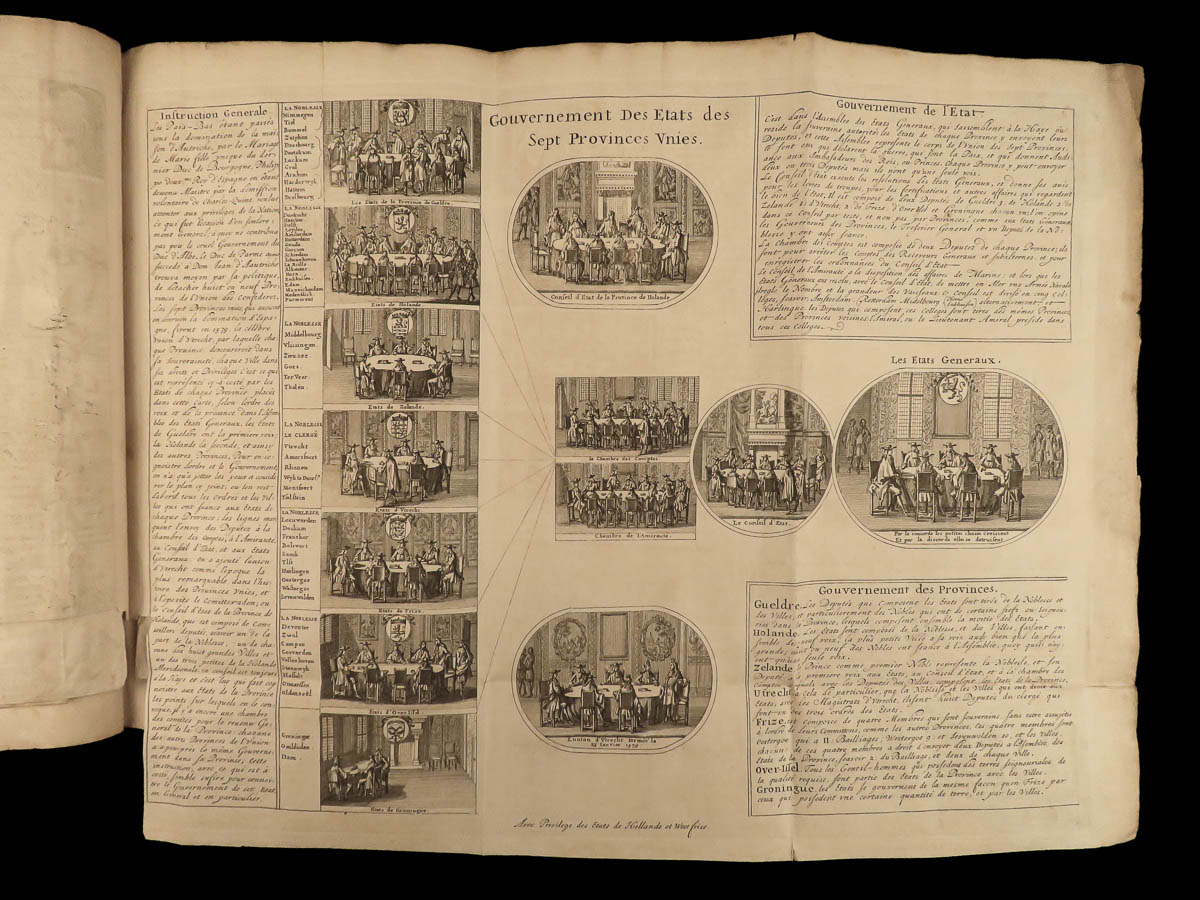 Instruction Generale
Les Païs-Bas étant passés
sous la domination de la mai-
son d'Autriche, par le Mariage
de Marie fille unique du der-
nier Duc de Bourgogne, Philip-
pe deux.me Roy d'Espagne en étant
devenu Maitre par la demission
volontaire de Charles-Quint, voulut
attenter aux privileges de la Nation,
ce qui fut l'ocasion d'un souleve-
ment General, à quoy ne contribua
pas peu le cruel Gouvernement du
Duc d'Albe. Le Duc de Parme ayant
succedé a Dom Jean d'Autriche
trouva moyen par sa politique,
de détacher huict ou neuf Pro-
vinces de l'Union des Confederez.
Les sept Provinces unies, qui avoient
en horreur la domination d'Espa-
gne, firent en 1579 la célèbre
Vnion d'Utrecht, par laquelle cha-
que Province, demeureroit dans
sa Souveraineté, chaque Ville dans
ses droits et Privileges. C'est ce qui
est représenté cy-à costé par les
Etats de chaque Province placés
dans cette carte, selon l'ordre des
voix et de la préséance dans l'Assem-
blée des Etats Generaux, les Etats
de Gueldre ont la premiere voix;
la Holande la seconde, et ainsi
des autres Provinces. Pour en co-
noistre l'ordre et le Gouvernement,
on n'a qu'à jetter les yeux et consi-
derer le plan cy joint; où l'on voit
d'abord tous les ordres et les Vil-
les qui ont séance aux Etats de
chaque Province; les lignes mar-
quent l'envoy des Deputez à la
chambre des Comptes, à l'Amirauté,
au Conseil d'Etat, et aux Etats
Generaux: on a ajouté l'union
d'Utrecht comme l'époque la
plus remarquable dans l'his-
toire des Provinces Vnies, et
à l'oposite le Comitteraden, ou
le Conseil d'Etat de la Province de
Holande, qui est composé de Con-
seillers deputez, sçavoir un de la
part de la Noblesse, un de cha-
cune des huit grandes Villes et
un des trois petites de la Holande
Meridionale, ce conseil est toujours
à la Haye et c'est luy qui fait co-
noistre aux Etats de la Province
les points sur lesquels on le con-
voque, il y a encore une chambre
des comptes pour le revenu Ge-
neral de la Province; chacune
des autres Provinces de l'Union
a apeuprès le même Gouverne-
ment dans sa Province, cette
instruction, avec ce qui est à
costé, semble sufire pour connoi-
tre le Gouvernement de cet Etat
en General et en particulier.
LA NOBLESSE
Nimmegen
Tiel
Bommel
Zutphen
Doesbourg
Doetekum
Lockum
Grol
Arnhem
Harderwyk
Hattem
Deelbourg
Les Etats de la Province de Gueldre.
LA NOBLESSE
Dordrecht
Haerlem
Delft
Leyden
Amsterdam
Goude
Rotterdam
Gorcum
Schiedam
Schoonhoven
La Brille
Alkmaer
Horn
Enkhuisen
Edam
Monnickendam
Medenblick
Purmerent
Etats de Holande.
LA NOBLESSE
Middelbourg
Vlissingen
Ziriczee
Goes
Ter Veer.
Tholen.
Etats de Zelande.
LA NOBLESSE
LE CLERGE
Vtrecht
Amersfoort
Rhenen
Wyk te Duerst.
Montfoort
Etats d'Vtrecht
LA NOBLESSE
Leeuwarden
Dockum
Franeker
Bolswert
Sneek
Ylst
Harlingen
Oostergoe
Westergoe
Sevenwolden
Etats de Frize.
LA NOBLESSE
Deventer
Zwol
Campen
Coevorden
Vollenhoven
Steenwyk
Hasselt
Ommersen
Oldenzeel
Etats d'Over-Issel
Groeningue
Omlanden
Dam
Etats de Groningue
Gouvernement Des Etats des
Sept Provinces Vnies.
Conseil d'Etat de la Province de Holande
la Chambre des Comptes
Chambre de l'Amirauté
Le Conseil d'Etat.
Les Etats Generaux.
Par la concorde les petites choses croissent
Et par la discorde elles se detruisent.
L'union d'Vtrecht signée le
23 Janvier 1579
Gouvernement de l'Etat
C'est dans l'Assemblée des Etats Generaux, qui s'assemblent à la Haye où
reside la souveraine autorité; les Etats de chaque Province y envoyent leurs
Deputez, et cette Assemblée represente le corps de l'Union des Sept Provinces;
ce sont eux qui déclarent la guerre, qui font la Paix, et qui donnent Audi-
ance aux Ambassadeurs des Rois, ou Princes. Chaque Province y peut envoyer
deux ou trois Deputez mais ils n'ont qu'une seule voix.
Le Conseil d'Etat execute les resolutions des Etats Generaux, et donne ses avis
pour les levées de troupes, pour les fortifications et autres affaires qui regardent
le bien de l'Etat, Il est composé de deux Deputez de Gueldre 3. de Holande 2. de
Zelande 1. d'Vtrecht 2. de Frize 1. d'Over-Issel et Groningue chacun un. l'on opine
dans ce Conseil par teste, et non pas par Provinces, comme aux Etats Generaux
les Gouverneurs des Provinces, le Tresorier General et un Deputé de la No-
blesse y ont aussy seance.
La Chambre des Comptes est composée de deux Deputez de chaque Province; ils
sont pour arrêter les Comptes des Receveurs Generaux et subalternes, et pour
enregistrer les ordonnances du Conseil d'Etat.
Le Conseil de l'Amirauté a la disposition des affaires de Marine; et lors que les
Etats Generaux ont resolu, avec le Conseil d'Etat, de mettre en Mer une Armée Navale
il regle le Nombre et la grandeur des Vaisseaux. Ce Conseil est divisé en cinq Col-
leges, sçavoir, Amsterdam, Rotterdam Midelbourg, Horn et Enkhuisen alternativement, et
Harlingue, les Deputez qui composent ces Colleges sont tirez des mêmes Provinces,
et des Provinces voisines; l'Amiral, ou le Lieutenant Amiral preside dans
tous ces Colleges.
Gouvernement des Provinces.
Gueldre. Les Deputés qui composent les Etats sont tirés de la Noblesse et
des Villes, et particulierement des Nobles qui ont de certains fiefs ou seigneu-
ries dans la Province, lesquels composent ensemble la moitié des Etats.
Holande. Les Etats sont composés de la Noblesse, et des Villes, faisant en-
semble 19. voix, la plus petite Ville a sa voix aussi bien que la plus
grande, huit ou neuf des Nobles ont seance à l'Assemblée, quoy qu'ils n'ay-
ent qu'une seule voix.
Zelande. Le Prince comme premier Noble represente la Noblesse, et son
Deputé a premiere voix aux Etats, au Conseil d'Etat, et à la chambre des
Comptes, lesquels avec les Deputez des Villes composent les Etats de la Province.
Utrecht a cela de particulier, que la Noblesse et les Villes qui ont droit aux
Etats, avec les Magistrats d'Vtrecht, elisent huit Deputez du clergé qui
font un des trois ordres des Etats.
Frize, est composée de quatre Membres qui sont souverains, sans estre assujetis
à l'ordre de leurs Committens, comme les autres Provinces, ces quatre membres sont
Oostergoe qui a 11 Bailliages, Westergoe 9. et Sevenwolden 10, et les Villes.
chacun de ces quatre membres a droit d'envoyer deux Deputez à l'Assemblée des
Etats de la Province, sçavoir 2 du Bailliage, et deux de chaque Ville.
Over-Issel. Tous les Gentils-hommes qui possedent des terres seigneuriales de
la qualité requise, sont partie des Etats de la Province avec les Villes.
Groningue, les Etats se gouvernent de la mesme façon qu'en Frize par
ceux qui possedent une certaine quantité de terre, et par les Villes.
Avec Privilege des Etats de Hollande et Westfrise.